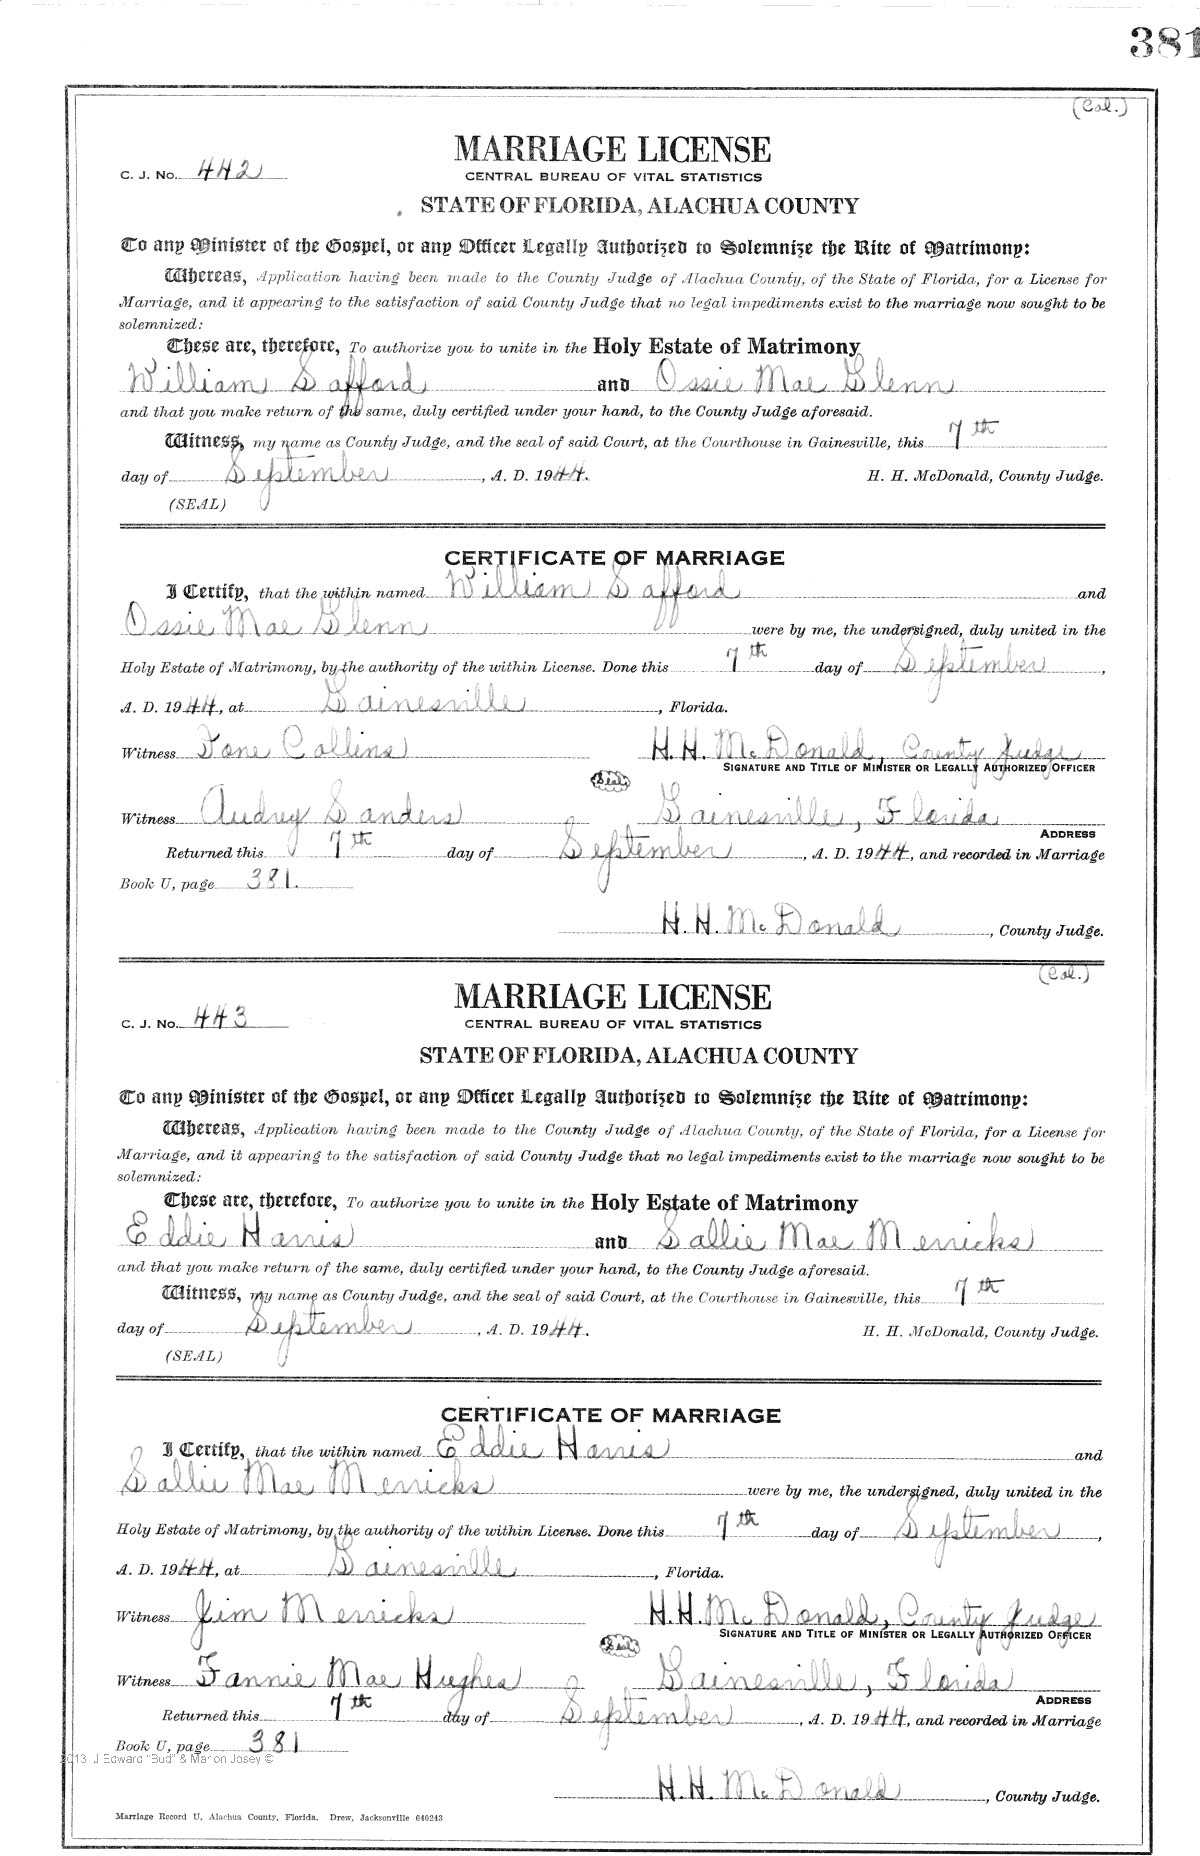 381
(Col.)
MARRIAGE LICENSE
C. J. No. 442
CENTRAL BUREAU OF VITAL STATISTICS
STATE OF FLORIDA, ALACHUA COUNTY
To any Minister of the Gospel, or any Officer Legally Authorized to Solemnize the Rite of Matrimony:
Whereas, Application having been made to the County Judge of Alachua County, of the State of Florida, for a License for
Marriage, and it appearing to the satisfaction of said County Judge that no legal impediments exist to the marriage now sought to be
solemnized:
These are, therefore, To authorize you to unite in the Holy Estate of Matrimony
William Safford and Ossie Mae Glenn
and that you make return of the same, duly certified under your hand, to the County Judge aforesaid.
Witness, my name as County Judge, and the seal of said Court, at the Courthouse in Gainesville, this 7th
day of September, A. D. 1944. H. H. McDonald, County Judge.
(SEAL)
CERTIFICATE OF MARRIAGE
I Certify, that the within named William Safford and
Ossie Mae Glenn were by me, the undersigned, duly united in the
Holy Estate of Matrimony, by the authority of the within License. Done this 7th day of September,
A. D. 1944, at Gainesville, Florida.
Witness Fone Collins H. H. McDonald, County Judge
SIGNATURE AND TITLE OF MINISTER OR LEGALLY AUTHORIZED OFFICER
(Seal)
Witness Audrey Sanders Gainesville, Florida
ADDRESS
Returned this 7th day of September, A. D. 1944, and recorded in Marriage
Book U, page 381.
H. H. McDonald, County Judge.
(Col.)
MARRIAGE LICENSE
C. J. No. 443
CENTRAL BUREAU OF VITAL STATISTICS
STATE OF FLORIDA, ALACHUA COUNTY
To any Minister of the Gospel, or any Officer Legally Authorized to Solemnize the Rite of Matrimony:
Whereas, Application having been made to the County Judge of Alachua County, of the State of Florida, for a License for
Marriage, and it appearing to the satisfaction of said County Judge that no legal impediments exist to the marriage now sought to be
solemnized:
These are, therefore, To authorize you to unite in the Holy Estate of Matrimony
Eddie Harris and Sallie Mae Merricks
and that you make return of the same, duly certified under your hand, to the County Judge aforesaid.
Witness, my name as County Judge, and the seal of said Court, at the Courthouse in Gainesville, this 7th
day of September, A. D. 1944. H. H. McDonald, County Judge.
(SEAL)
CERTIFICATE OF MARRIAGE
I Certify, that the within named Eddie Harris and
Sallie Mae Merricks were by me, the undersigned, duly united in the
Holy Estate of Matrimony, by the authority of the within License. Done this 7th day of September,
A. D. 1944, at Gainesville, Florida.
Witness Jim Merricks H. H. McDonald, County Judge
SIGNATURE AND TITLE OF MINISTER OR LEGALLY AUTHORIZED OFFICER
(Seal)
Witness Fannie Mae Hughes Gainesville, Florida
ADDRESS
Returned this 7th day of September, A. D. 1944, and recorded in Marriage
Book U, page 381
2013 J Edward "Bud" & Marion Josey ©
H. H. McDonald, County Judge.
Marriage Record U, Alachua County, Florida. Drew, Jacksonville 640243